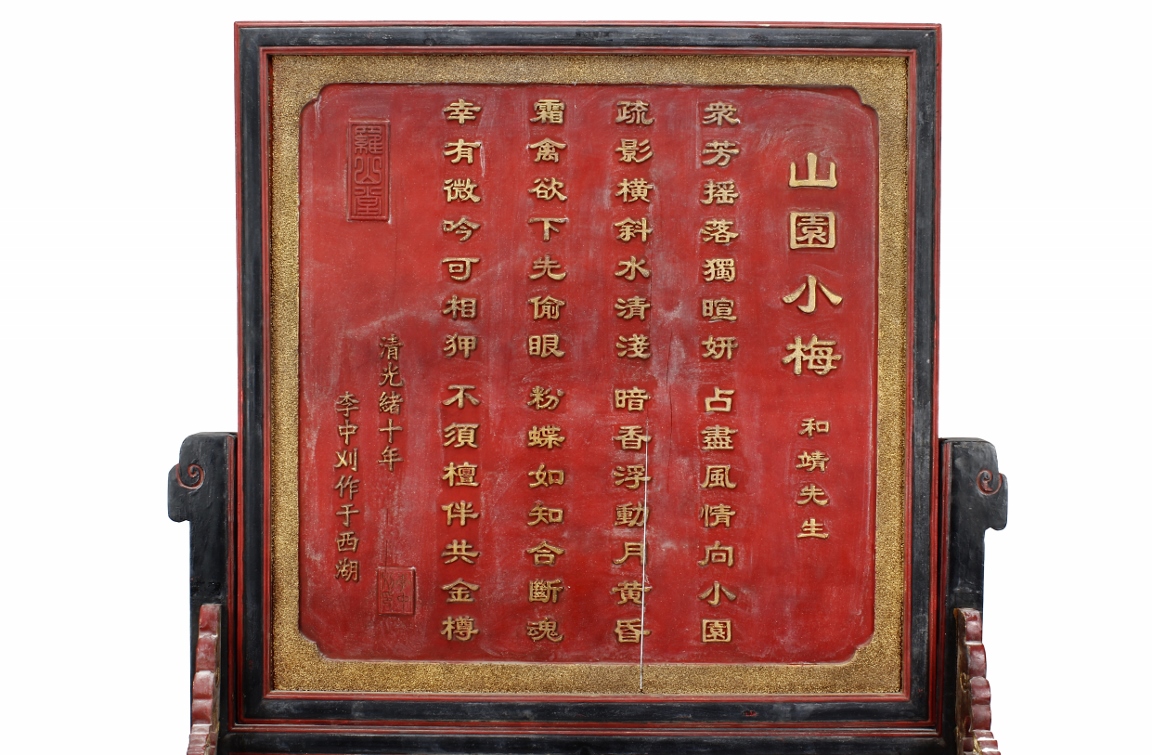 山園小梅 和靖先生
衆芳摇落獨暄妍 占盡風情向小園
疏影橫斜水清淺 暗香浮動月黄昏
霜禽欲下先偷眼 粉蝶如知合斷魂
幸有微吟可相狎 不須檀伴共金樽
清光緒十年
李中刈作于西湖